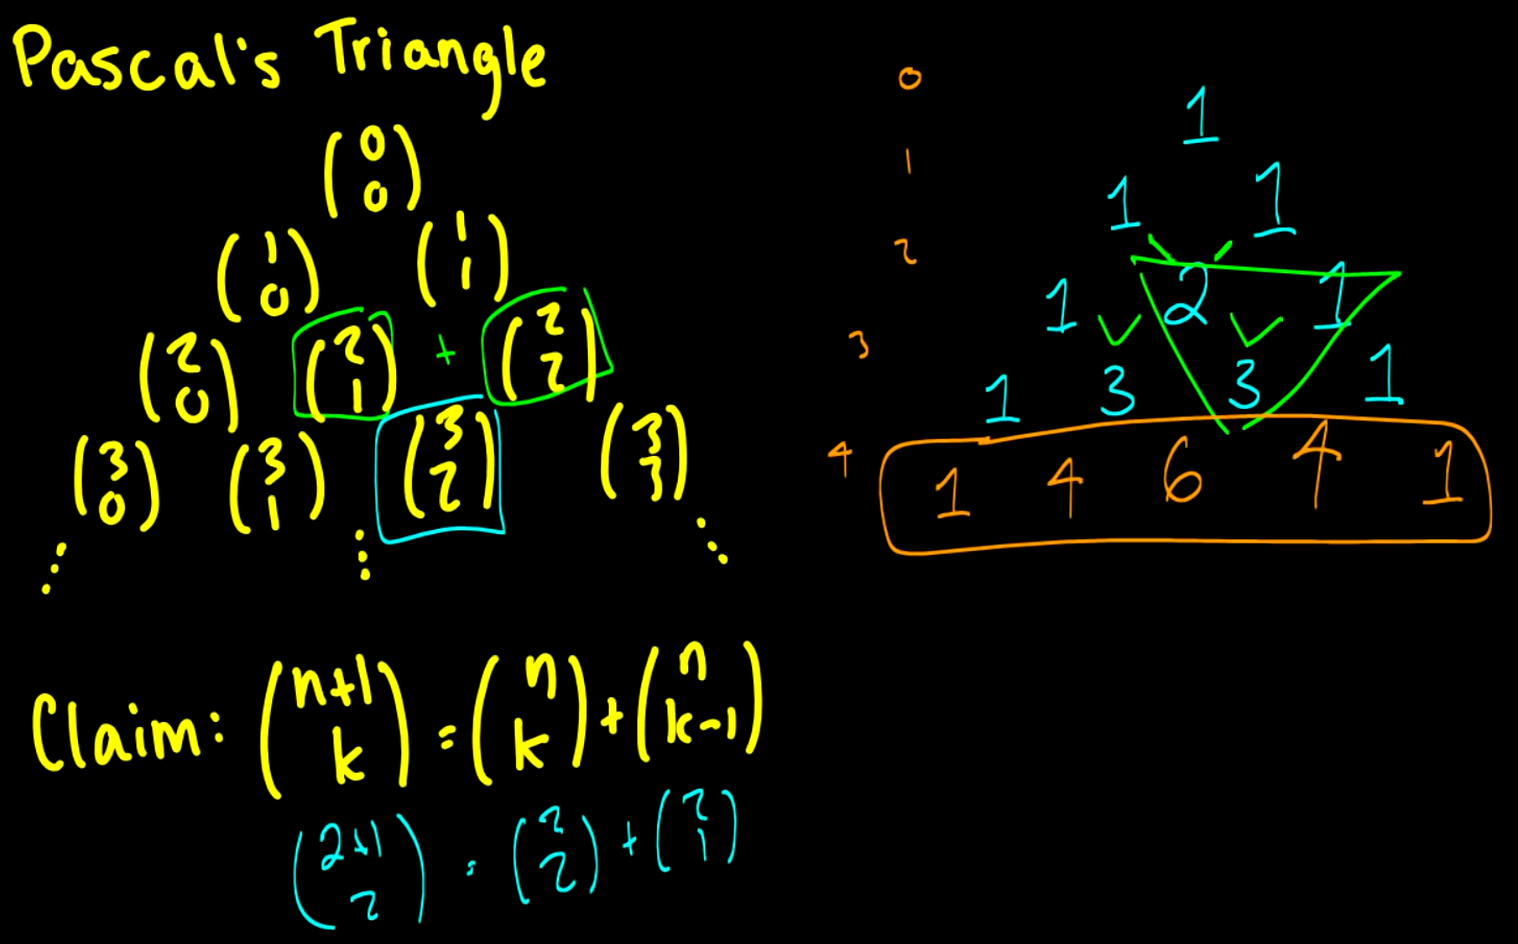 Pascal's Triangle
(0 0)
(1 0) (1 1)
(2 0) (2 1) + (2 2)
(3 0) (3 1) (3 2) (3 3)
Claim: (n+1 k) = (n k) + (n k-1)
(2+1 2) = (2 2) + (2 1)
0 1
1 1 1
2 1 2 1
3 1 3 3 1
4 1 4 6 4 1